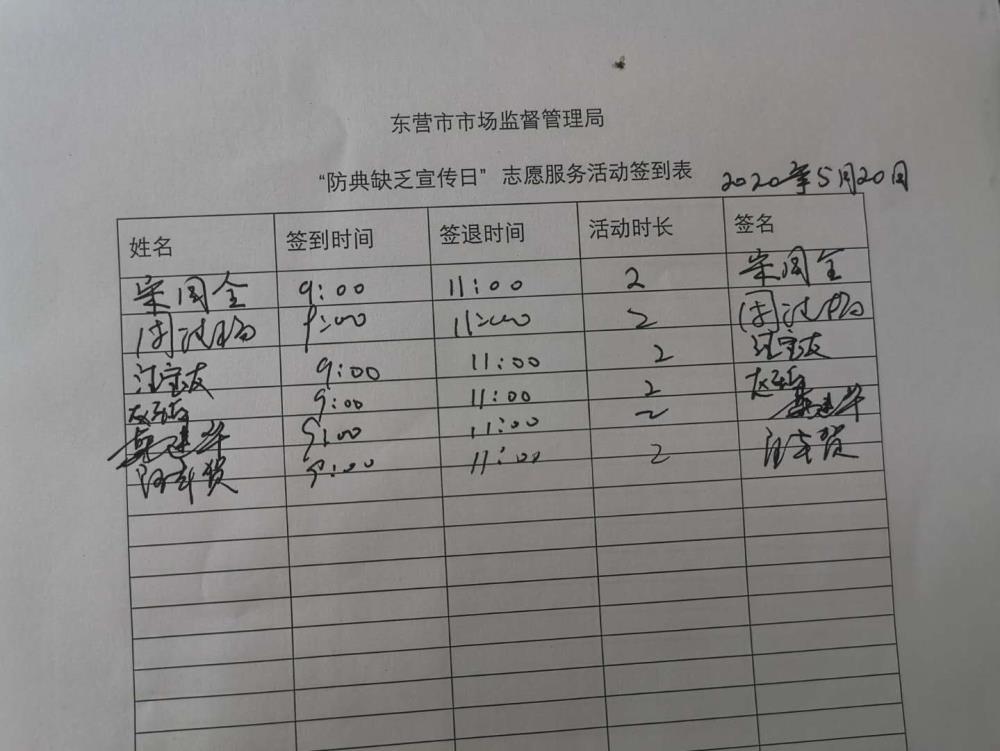 东营市市场监督管理局
“防典缺乏宣传日” 志愿服务活动签到表 2020年5月20日
姓名 签到时间 签退时间 活动时长 签名
宋周全 9:00 11:00 2 宋周全
9:00 11:00 2
汪宝友 9:00 11:00 2 汪宝友
9:00 11:00 2
9:00 11:00 2
9:00 11:00 2